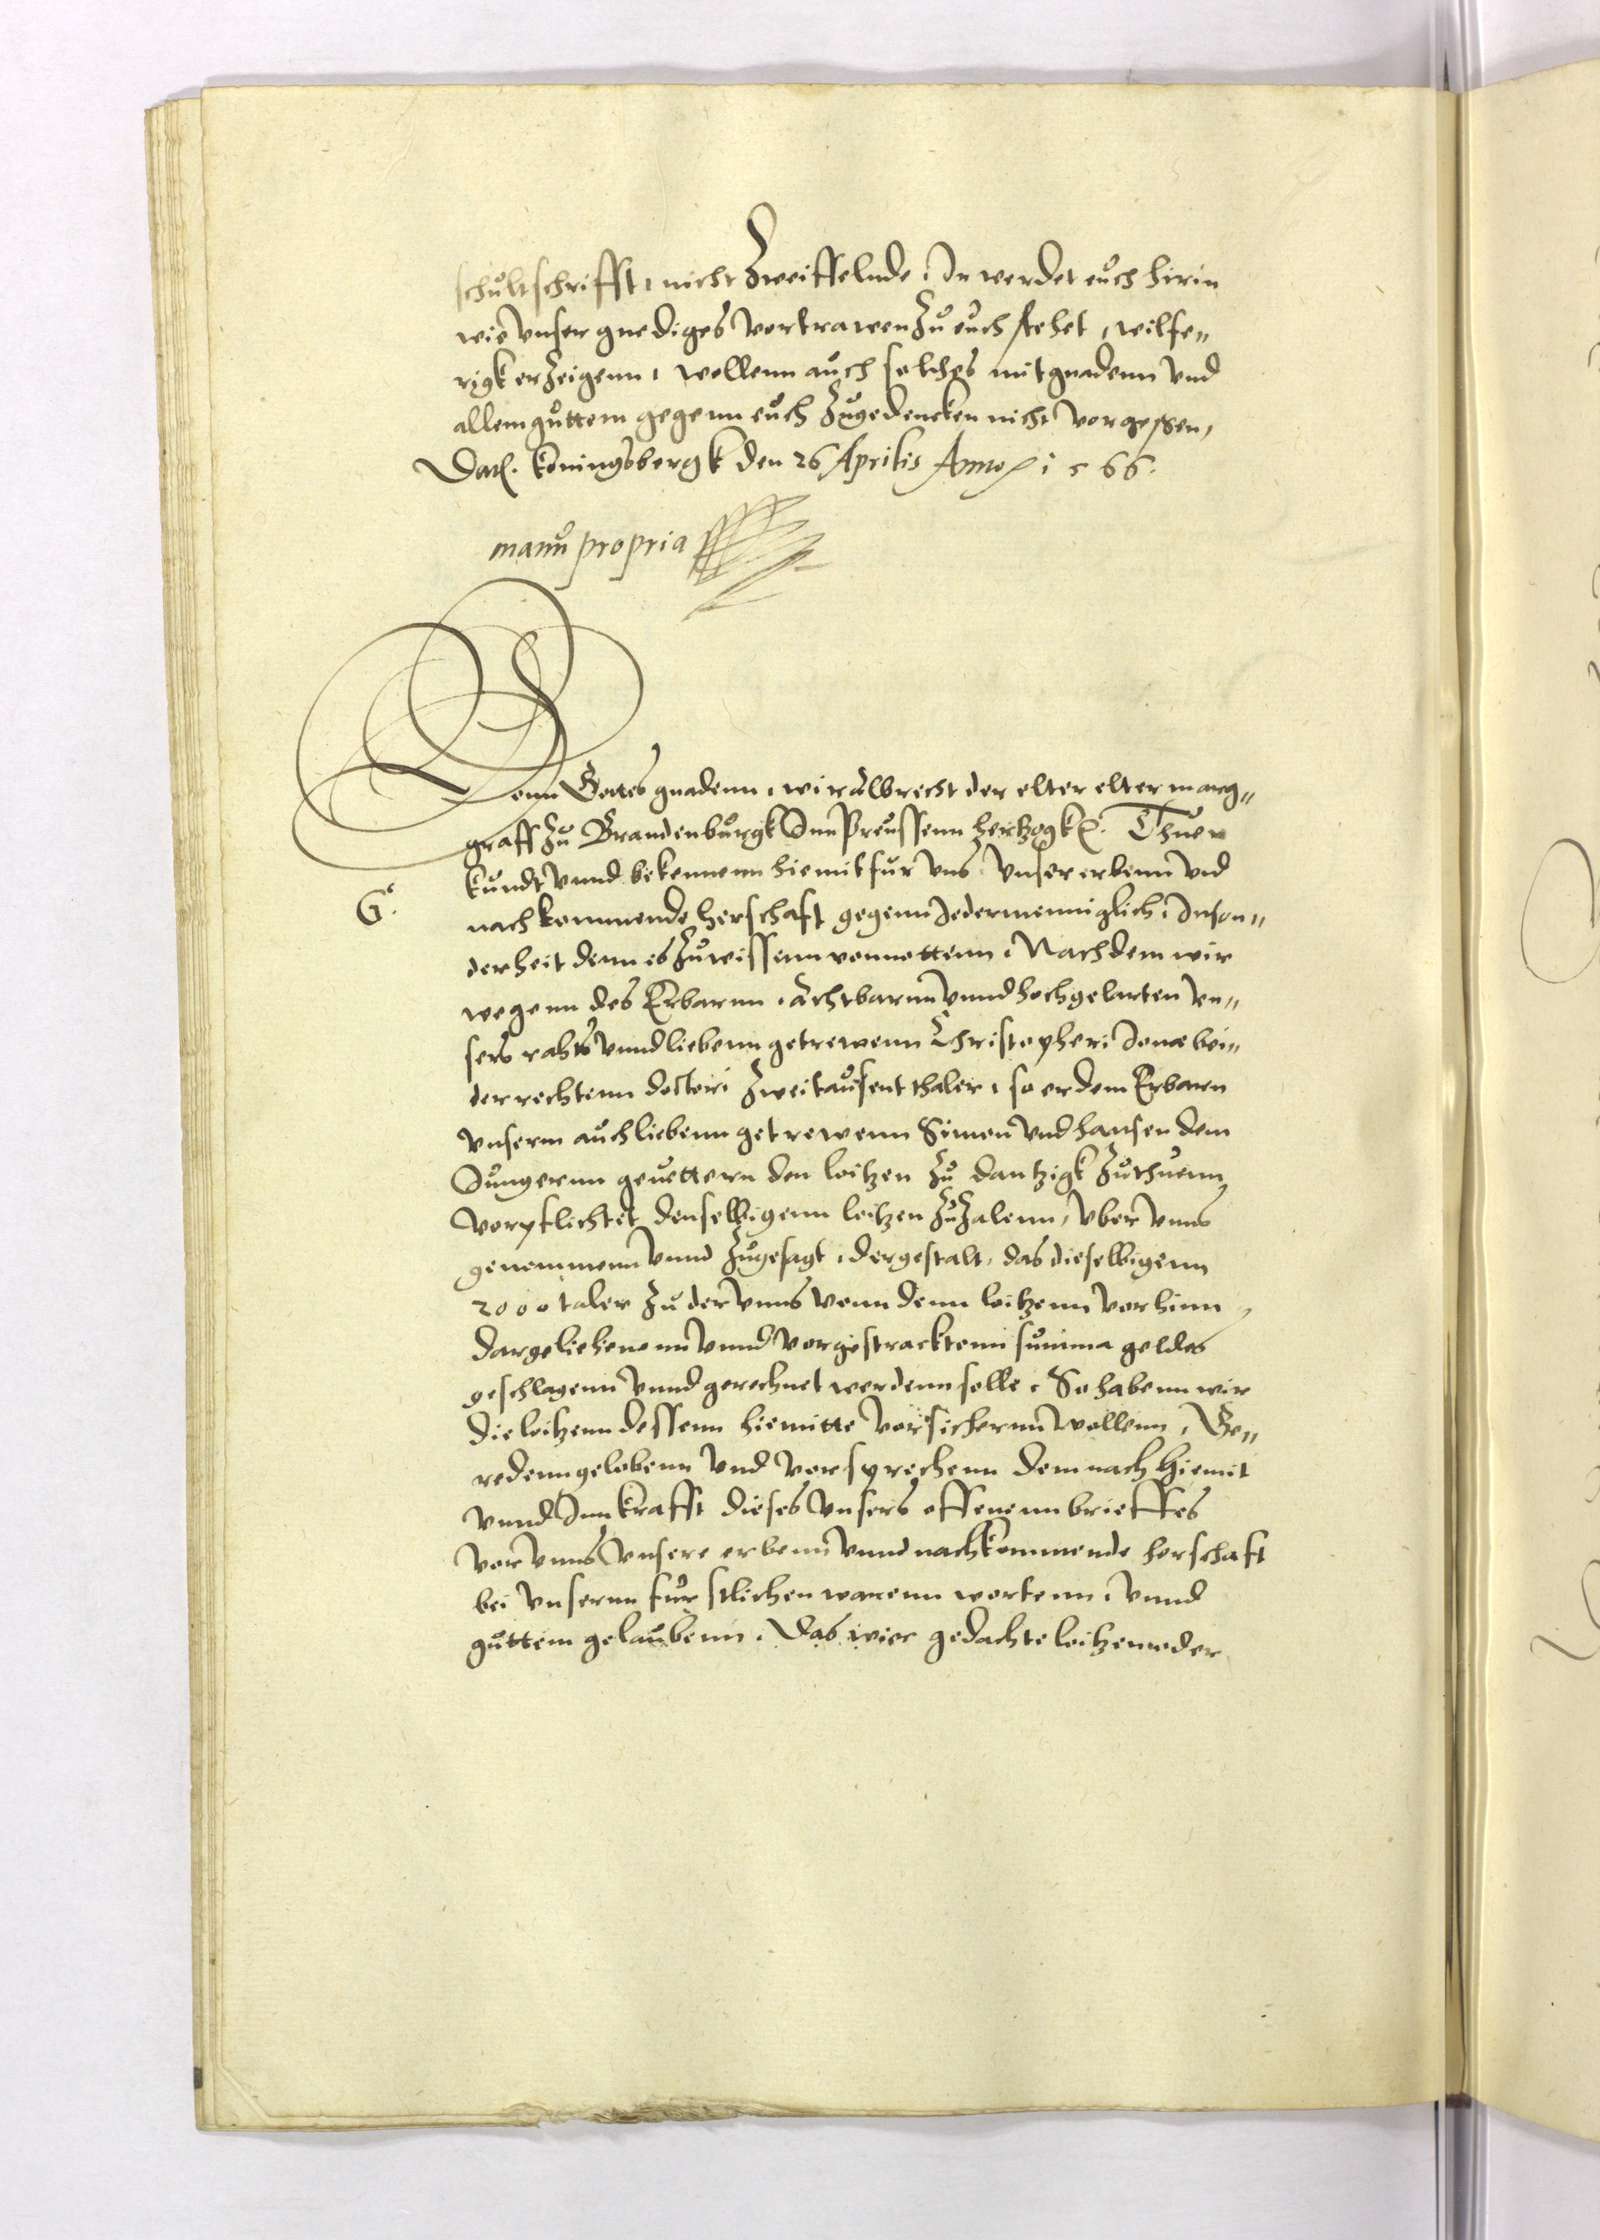 schultschrifft, nicht Zweiffelnde, Ir werdet euch hirin
wie vnser gnediges vertrawen Zu euch stehet, wilfe„
rigk erZeigenn, wollenn auch solches mit gnadenn vnd
allem guttem gegenn euch Zugedencken nicht vorgessen,
Dat. Koningsbergk den 26 Aprilis Anno ꝛc 1566.
manu propria
Vonn Gottes gnadenn, wir Albrecht der elter elter marg„
graff Zu Brandenburgk Inn Preussenn hertzogk ꝛc. Thuen
G.
kundt vnnd bekennenn hiemit fur vns vnser erbenn vnd
nachkommende herschafft gegenn Jedermenniglich, Inson„
derheit denn es Zuwissenn vonnottenn, Nachdem wir
wegenn des Erbarnn, Achtbarnn vnnd hochgelarten vn„
sers rahts vnnd liebenn getrewenn Christopheri Jonæ bei„
der rechtenn doctori Zweitausent thaler, so er dem Erbarn
vnserm auch liebenn getrewenn Simon vnd hansen dem
Jungernn geuettern den loitzen Zu dantzigk Zuthuenn
vorpflichtet denselbigenn loitzen ZuZalenn, vber vnns
genommenn vnnd Zugesagt, dergestalt, das dieselbigenn
2000 taler Zu der vnns vonn denn loitzenn vorhinn
dargeliehenenn vnnd vorgestracktenn summa geldes
geschlagenn vnnd gerechnet werdenn solle, So habenn wir
die loitzenn dessenn hiemitte vorsichernn wollenn, Ge„
redenn gelobenn vnd vorsprechenn demnach hiemit
vnnd Inn krafft dieses vnsers offenenn brieffes
vor vnns vnsere erbenn vnnd nachkommende herschaft
bei vnsernn furstlichen warenn wortenn, vnnd
guttem gelaubenn, Das wier gedachte loitzenn oder